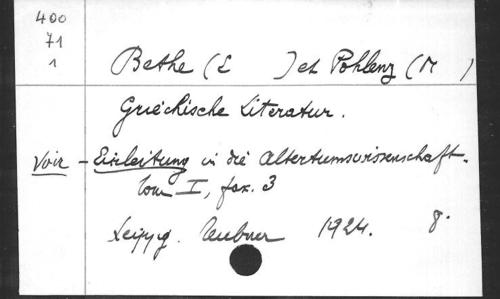 400
71
1
Bethe (E ) et Pohlenz (M )
Griechische Literatur.
Voir - Einleitung in die Altertumswissenschaft.
Tom I, fax. 3
Leipzig. Teubner 1924. 8°